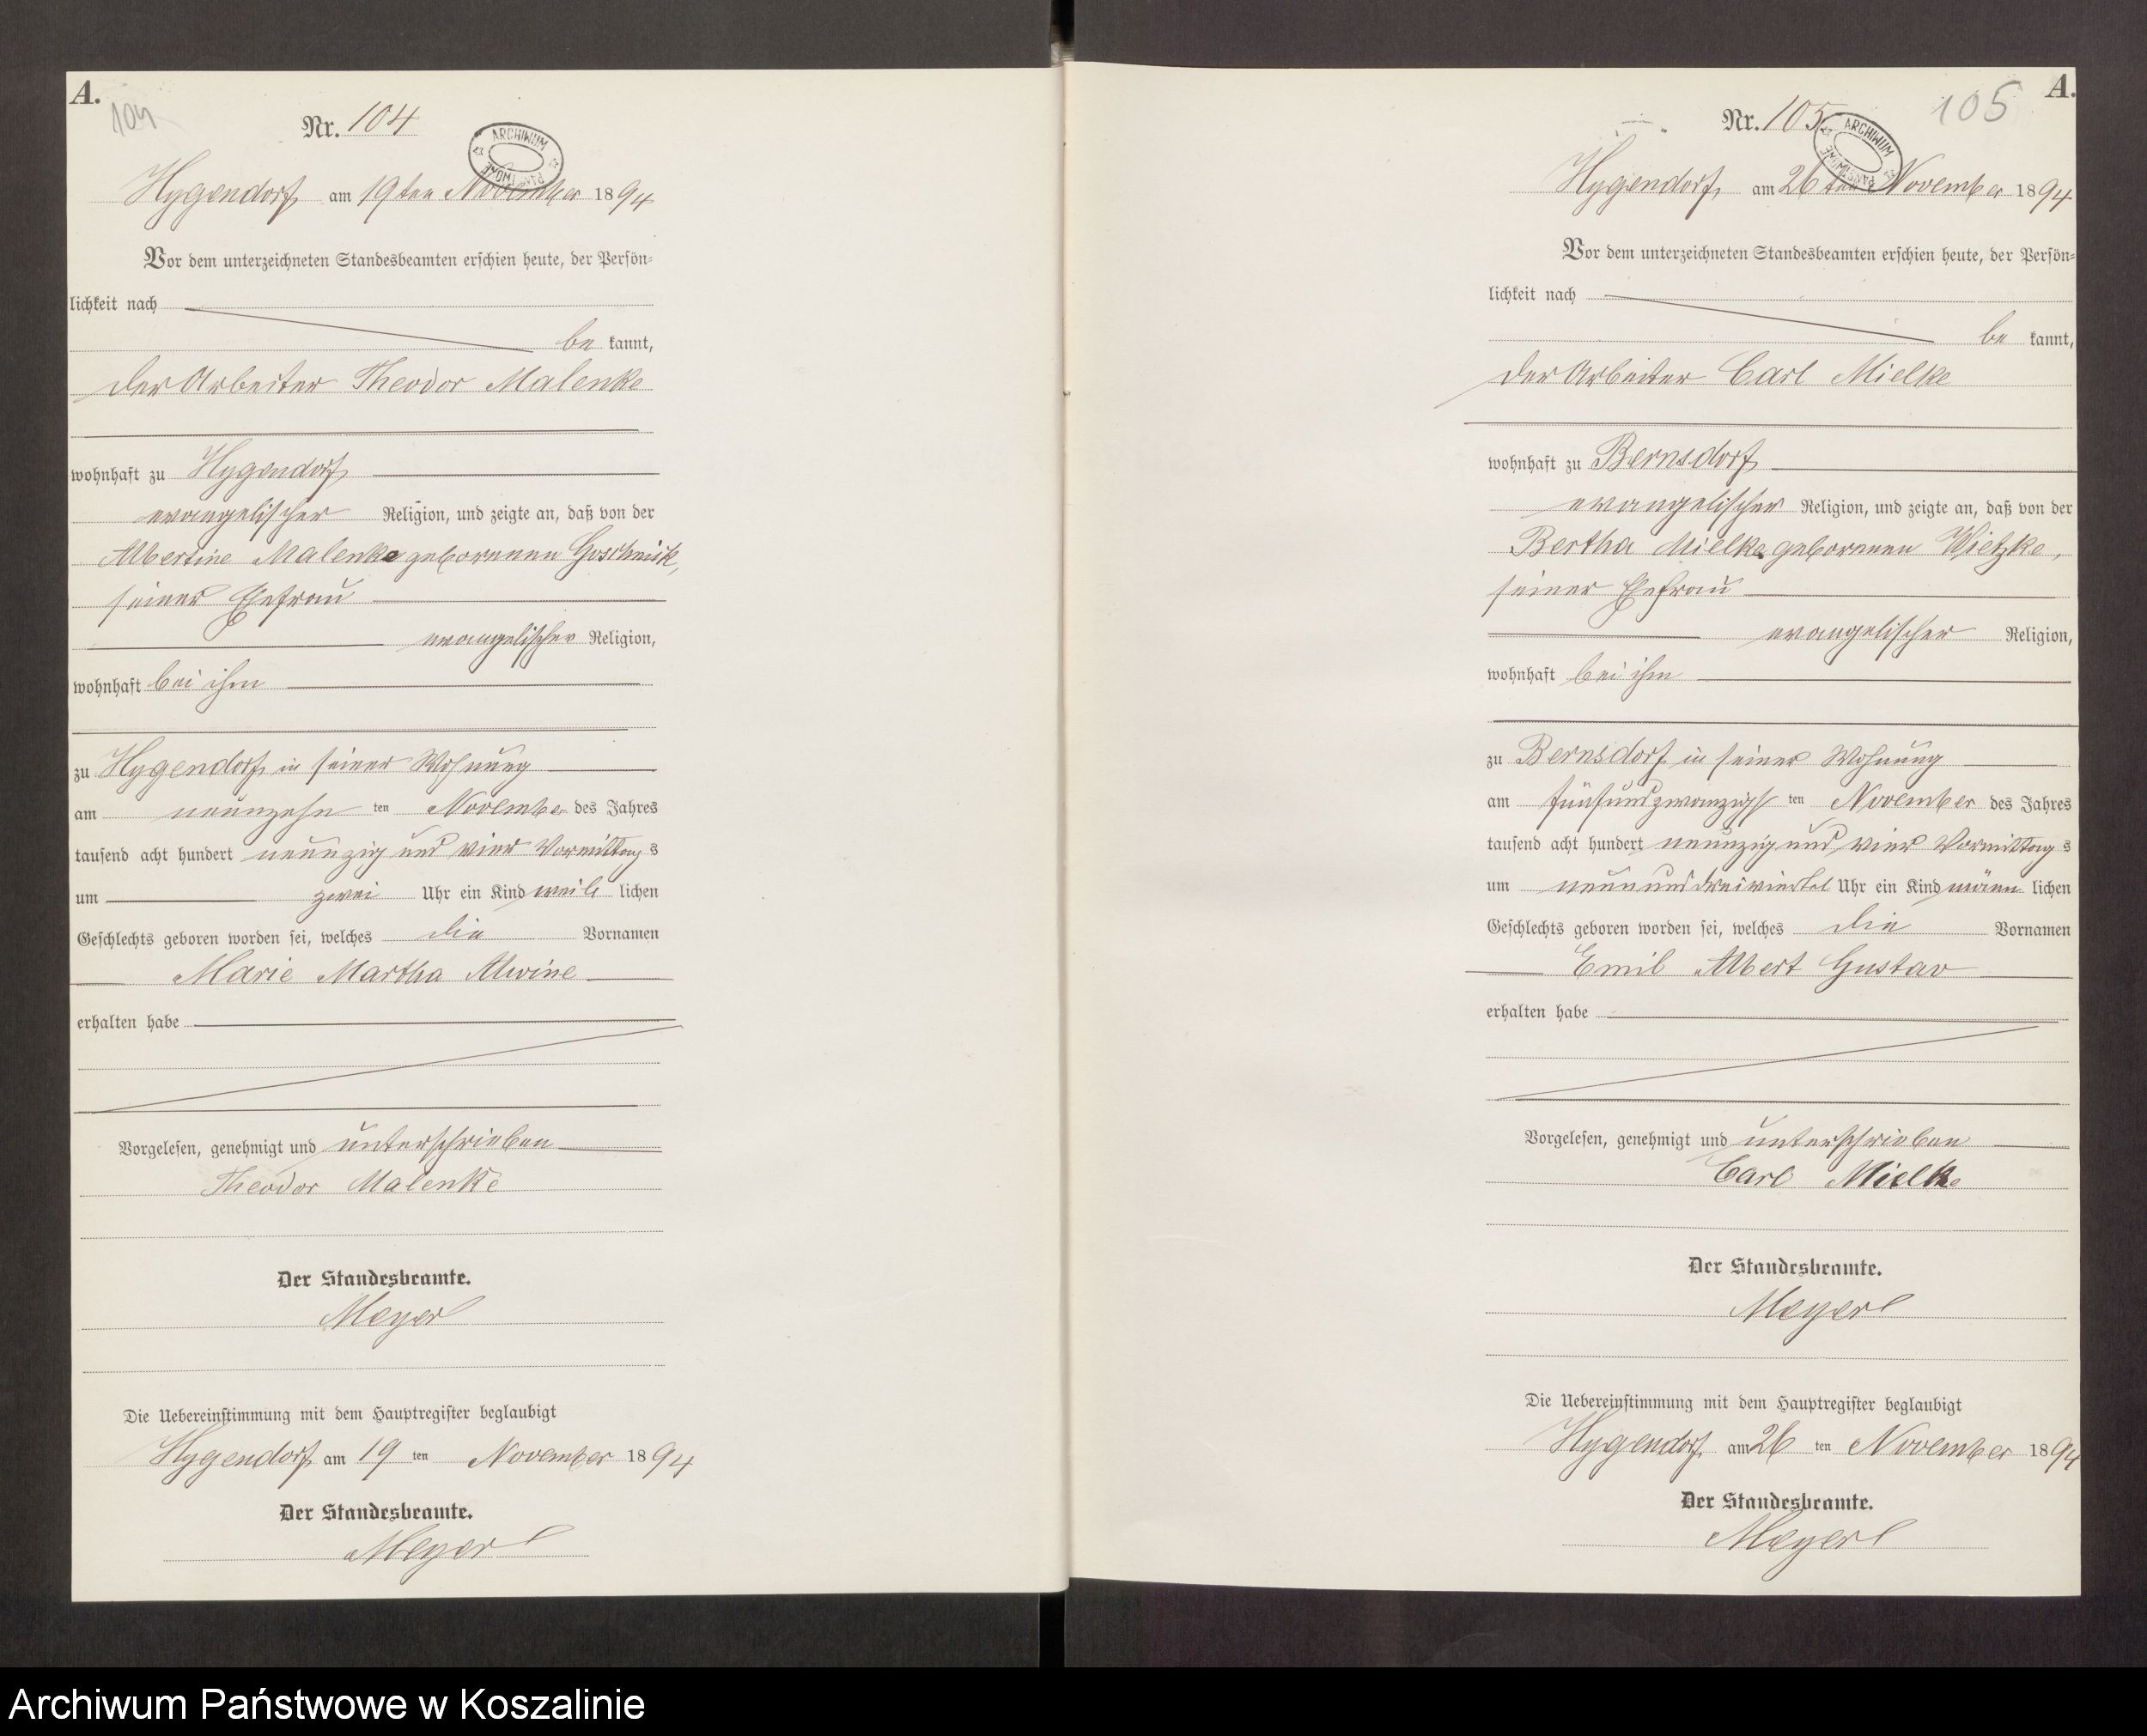 A.
104
Nr. 104
ARCHIWUM
Hygendorf am 19ten November 1894
Vor dem unterzeichneten Standesbeamten erschien heute, der Persön-
lichkeit nach
be kannt,
der Arbeiter Theodor Malenke
wohnhaft zu Hygendorf
evangelischer Religion, und zeigte an, daß von der
Albertine Malenke geborenen
seiner Ehefrau
evangelischer Religion,
wohnhaft bei ihm
zu Hygendorf in seiner Wohnung
am neunzehn ten November des Jahres
tausend acht hundert neunzig und vier Vormittags
um zwei Uhr ein Kind weib lichen
Geschlechts geboren worden sei, welches die Vornamen
Marie Martha Alwine
erhalten habe
Vorgelesen, genehmigt und unterschrieben
Theodor Malenke
Der Standesbeamte.
Meyer
Die Uebereinstimmung mit dem Hauptregister beglaubigt
Hygendorf am 19 ten November 1894
Der Standesbeamte.
Meyer
A.
105
Nr. 105
ARCHIWUM
Hygendorf, am 26ten November 1894
Vor dem unterzeichneten Standesbeamten erschien heute, der Persön-
lichkeit nach
be kannt,
der Arbeiter Carl Mielke
wohnhaft zu Bernsdorf
evangelischer Religion, und zeigte an, daß von der
Bertha Mielke geborenen Wietzke,
seiner Ehefrau
evangelischer Religion,
wohnhaft bei ihm
zu Bernsdorf in seiner Wohnung
am fünfundzwanzigst ten November des Jahres
tausend acht hundert neunzig und vier Vormittags
um neun und dreiviertel Uhr ein Kind männ lichen
Geschlechts geboren worden sei, welches die Vornamen
Emil Albert Gustav
erhalten habe
Vorgelesen, genehmigt und unterschrieben
Carl Mielke
Der Standesbeamte.
Meyer
Die Uebereinstimmung mit dem Hauptregister beglaubigt
Hygendorf, am 26 ten November 1894
Der Standesbeamte.
Meyer
Archiwum Państwowe w Koszalinie